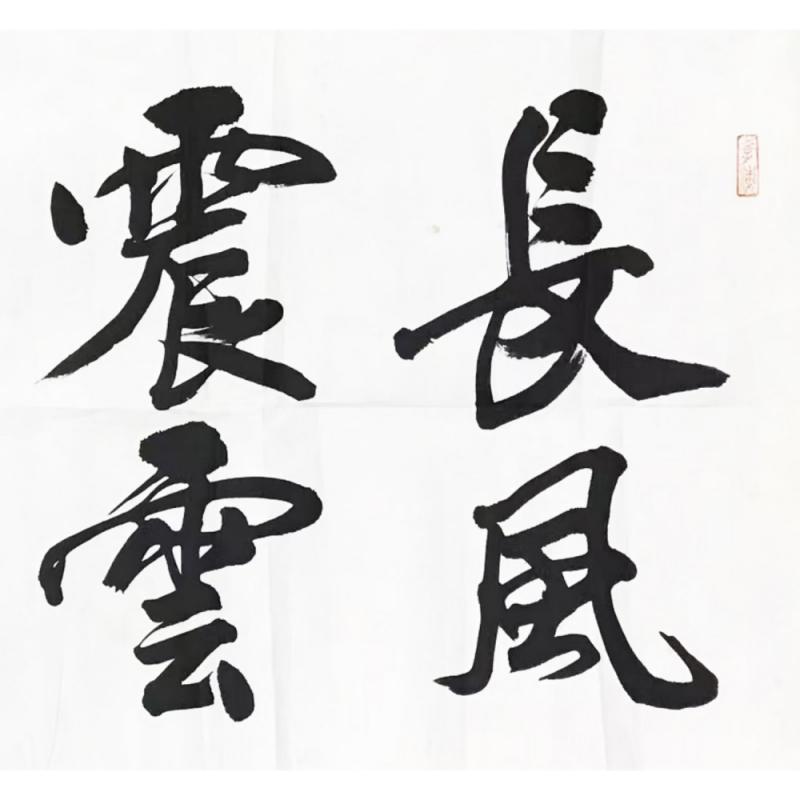 長風
震雲